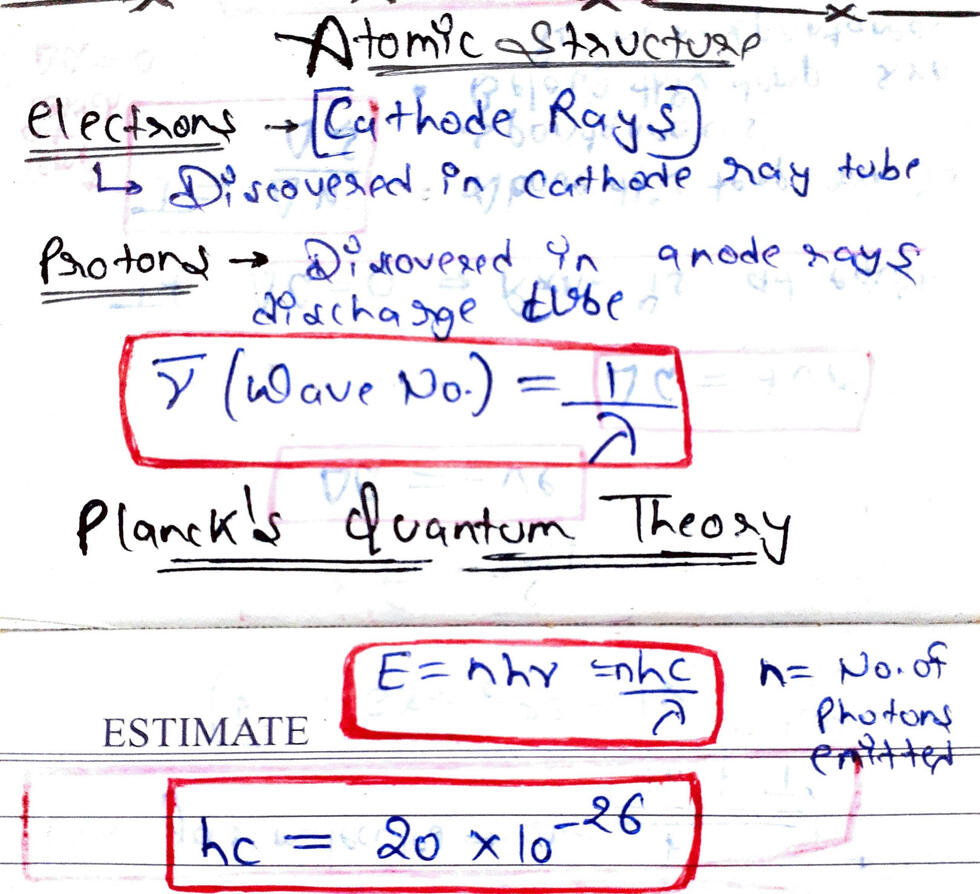 Atomic Structure
Electrons → [Cathode Rays]
↳ Discovered in cathode ray tube
Protons → Discovered in anode rays
discharge tube
ν̅ (Wave No.) = 1/λ
Planck's Quantum Theory
E = nhν = nhc/λ n = No. of
Photons
emitted
ESTIMATE
hc = 20 × 10⁻²⁶